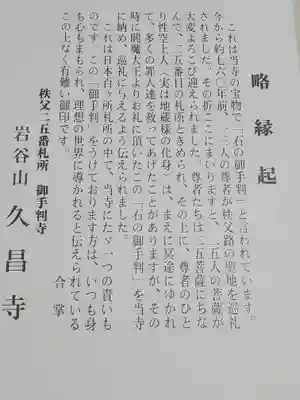 略縁起
これは当寺の宝物で「石の御手判」と言われています。
今から約七六〇年前、十三人の尊者が秩父路の聖地を巡礼
されました。その折ここにまいりますと、二五人の菩薩が
大変よろこび迎えられました。尊者たちは二五菩薩にちな
んで、二五番目の札所ときめられ、その上に、尊者のひと
り性空上人（実は地蔵様の化身）は、まえに冥途にゆかれ
て、多くの罪人達を救ってあげたことがありますが、その
時に閻魔大王よりお礼に頂いたこの「石の御手判」を当寺
に納め、巡礼に与えるよう伝えられました。
これは日本百ヶ所札所の中で、当寺にたゞ一つの貴いも
のです。この「御手判」をうけております方は、いつも身
も心もまもられ、理想の世界に導かれると伝えられている
この上なく有難い御印です。
合掌
秩父二五番札所　御手判寺
岩谷山　久昌寺